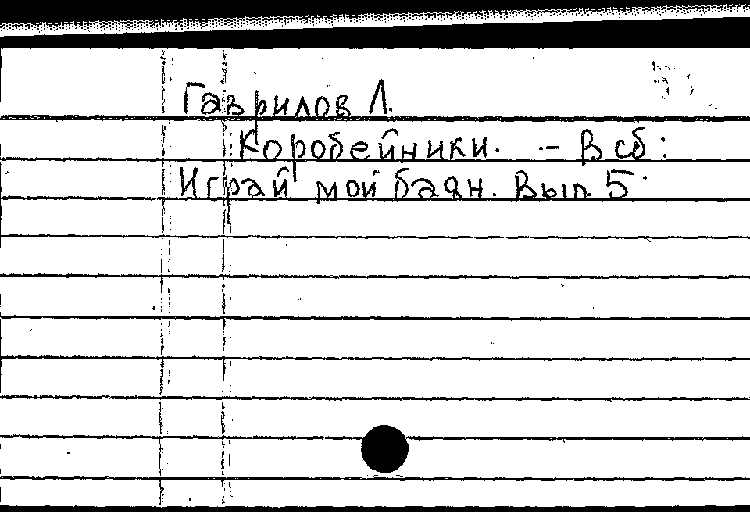 Гаврилов Л.
Коробейники. - В сб:
Играй мой баян. Вып. 5